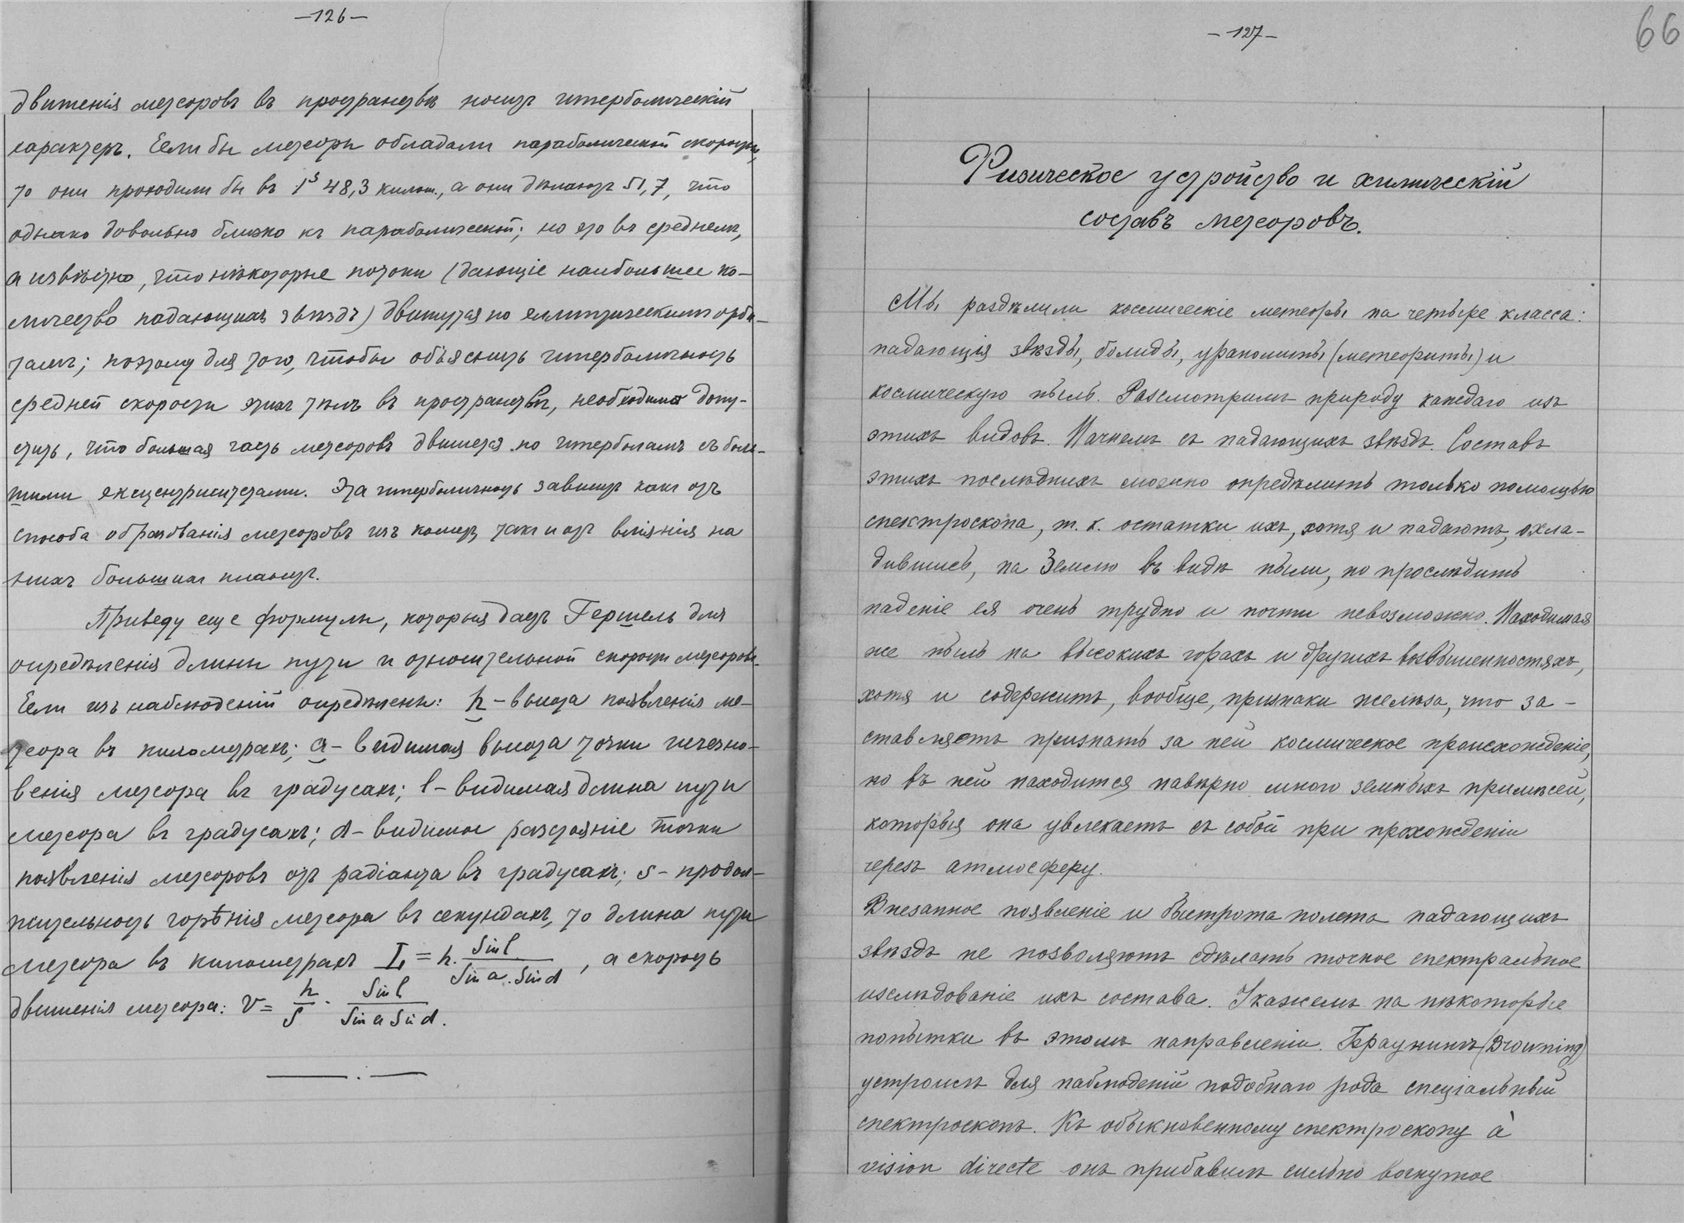 —126—
движенія метеоровъ въ пространствѣ носитъ гиперболическій
характеръ. Если бы метеоры обладали параболической скоростью,
то они проходили бы въ 1ˢ 48,3 килом., а они дѣлаютъ 51,7, что
однако довольно близко къ параболической; но это въ среднемъ,
а извѣстно, что нѣкоторые потоки (дающіе наибольшее ко-
личество падающихъ звѣздъ) движутся по еллиптическимъ орби-
тамъ; поэтому для того, чтобы объяснить гиперболичность
средней скорости этихъ тѣлъ въ пространствѣ, необходимо допу-
стить, что большая часть метеоровъ движется по гиперболамъ съ боль-
шими эксцентриситетами. Эта гиперболичность зависитъ какъ отъ
способа образованія метеоровъ изъ кометъ, такъ и отъ вліянія на
нихъ большихъ планетъ.
Приведу еще формулы, которыя даетъ Гершель для
опредѣленія длины пути и относительной скорости метеоровъ.
Если изъ наблюденій опредѣлены: h – высота появленія ме-
теора въ километрахъ; a – видимая высота точки исчезно-
венія метеора въ градусахъ; l – видимая длина пути
метеора въ градусахъ; d – видимое разстояніе точки
появленія метеоровъ отъ радіанта въ градусахъ; s – продол-
жительность горѣнія метеора въ секундахъ, то длина пути
метеора въ километрахъ L = h. Sin l / Sin a. Sin d, а скорость
движенія метеора: v = h/s · Sin l / Sin a Sin d.
—127—
66
Физическое устройство и химическій
составъ метеоровъ.
Мы раздѣлили космическіе метеоры на четыре класса:
падающія звѣзды, болиды, уранолиты (метеориты) и
космическую пыль. Разсмотримъ природу каждаго изъ
этихъ видовъ. Начнемъ съ падающихъ звѣздъ. Составъ
этихъ послѣднихъ можно опредѣлить только помощью
спектроскопа, т. к. остатки ихъ, хотя и падаютъ, охла-
дившись, на Землю въ видѣ пыли, но прослѣдить
паденіе ея очень трудно и почти невозможно. Находимая
же пыль на высокихъ горахъ и другихъ возвышенностяхъ,
хотя и содержитъ, вообще, признаки желѣза, что за-
ставляетъ признать за ней космическое происхожденіе,
но въ ней находится навѣрно много земныхъ примѣсей,
которыя она увлекаетъ съ собой при прохожденіи
черезъ атмосферу.
Внезапное появленіе и быстрота полета падающихъ
звѣздъ не позволяютъ сдѣлать точное спектральное
изслѣдованіе ихъ состава. Укажемъ на нѣкоторые
попытки въ этомъ направленіи. Браунингъ (Browning)
устроилъ для наблюденій подобнаго рода спеціальный
спектроскопъ. Къ обыкновенному спектроскопу à
vision directe онъ прибавилъ сильно вогнутое